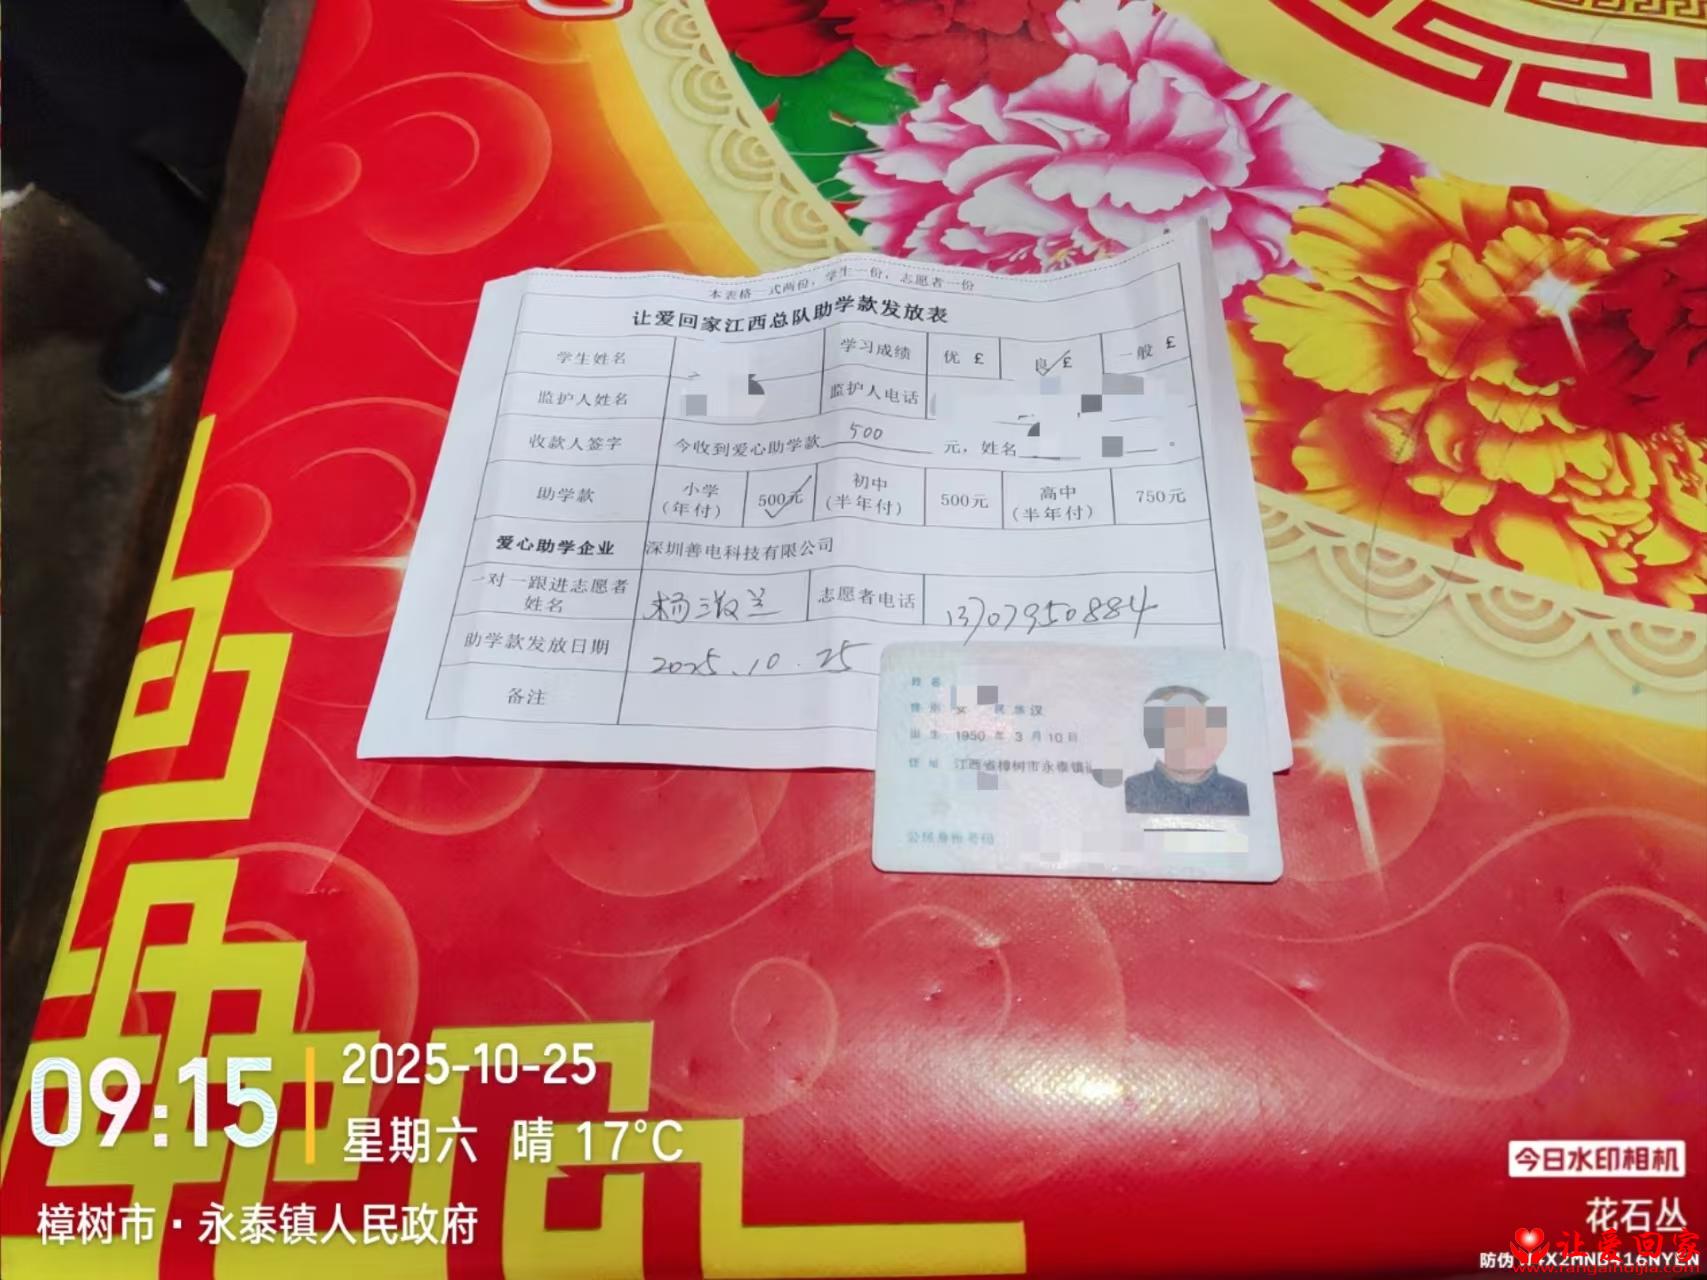 本表格一式两份，学生一份，志愿者一份
让爱回家江西总队助学款发放表
学生姓名 学习成绩 优 £ 良 £ 一般 £
监护人姓名 监护人电话
收款人签字 今收到爱心助学款 500 元，姓名 。
助学款 小学（年付） 500元 初中（半年付） 500元 高中（半年付） 750元
爱心助学企业 深圳善电科技有限公司
一对一跟进志愿者姓名 杨 兰 志愿者电话 13707950884
助学款发放日期 2025.10.25
备注
姓名
性别 女 民族 汉
出生 1950 年 3 月 10 日
住址 江西省樟树市永泰镇
公民身份号码
09:15
2025-10-25
星期六 晴 17°C
樟树市·永泰镇人民政府
今日水印相机
花石丛
防伪
让爱回家
www.rangaihuijia.com